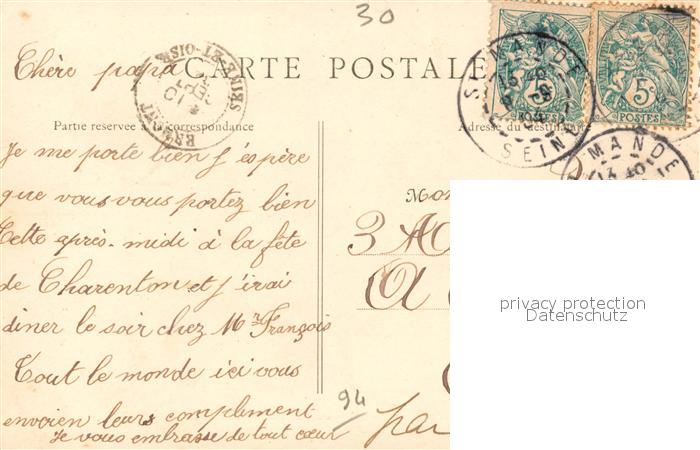 30
Chère papa
CARTE POSTALE
Partie reservée à la correspondance
Adresse du destinataire
SEINE-ET-OISE
ST MANDÉ
SEINE
MANDE
5c 5c
POSTES POSTES
Je me porte bien j'espère
que vous vous portez bien
Cette après-midi à la fête
de Charenton et j'irai
diner le soir chez Mr François
Tout le monde ici vous
envoien leurs complement
Je vous embrasse de tout cœur
Mon
3
A
94
par
privacy protection
Datenschutz